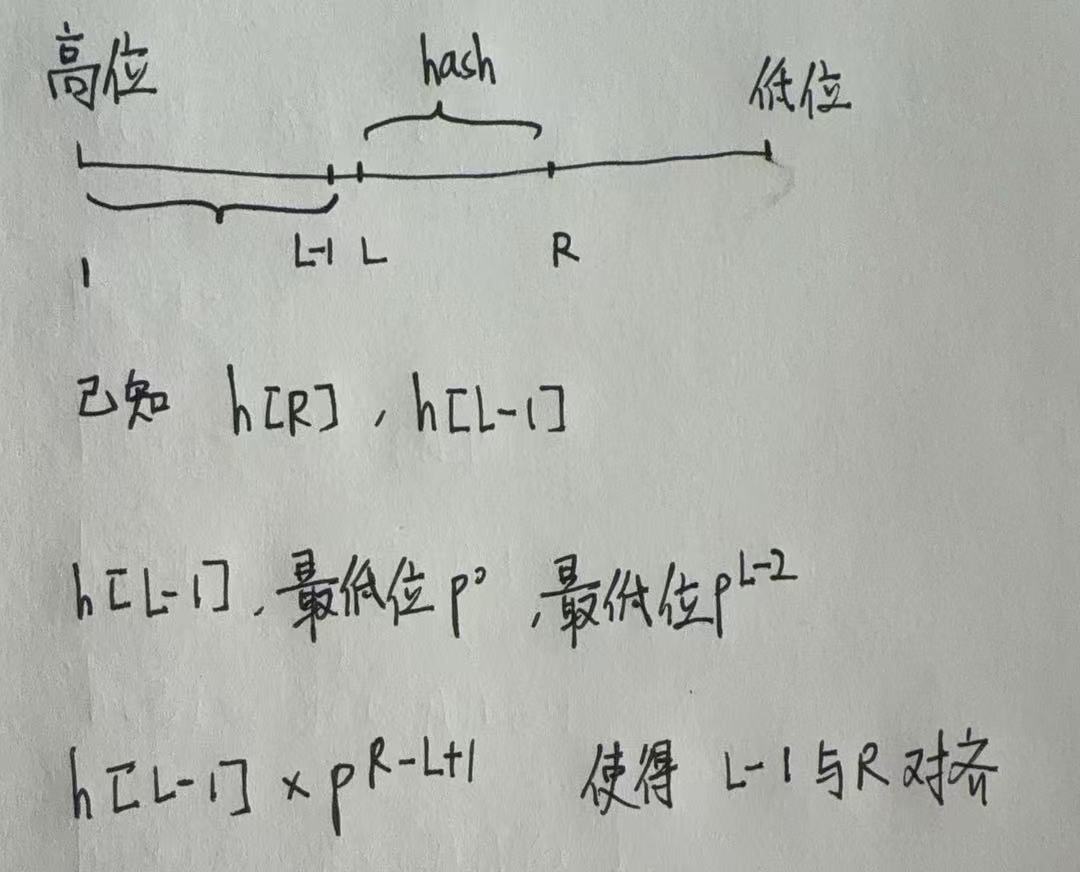 高位 hash 低位
1 L-1 L R
已知 h[R] , h[L-1]
h[L-1] , 最低位 p⁰ , 最低位 p^{L-2}
h[L-1] × p^{R-L+1} 使得 L-1 与 R 对齐